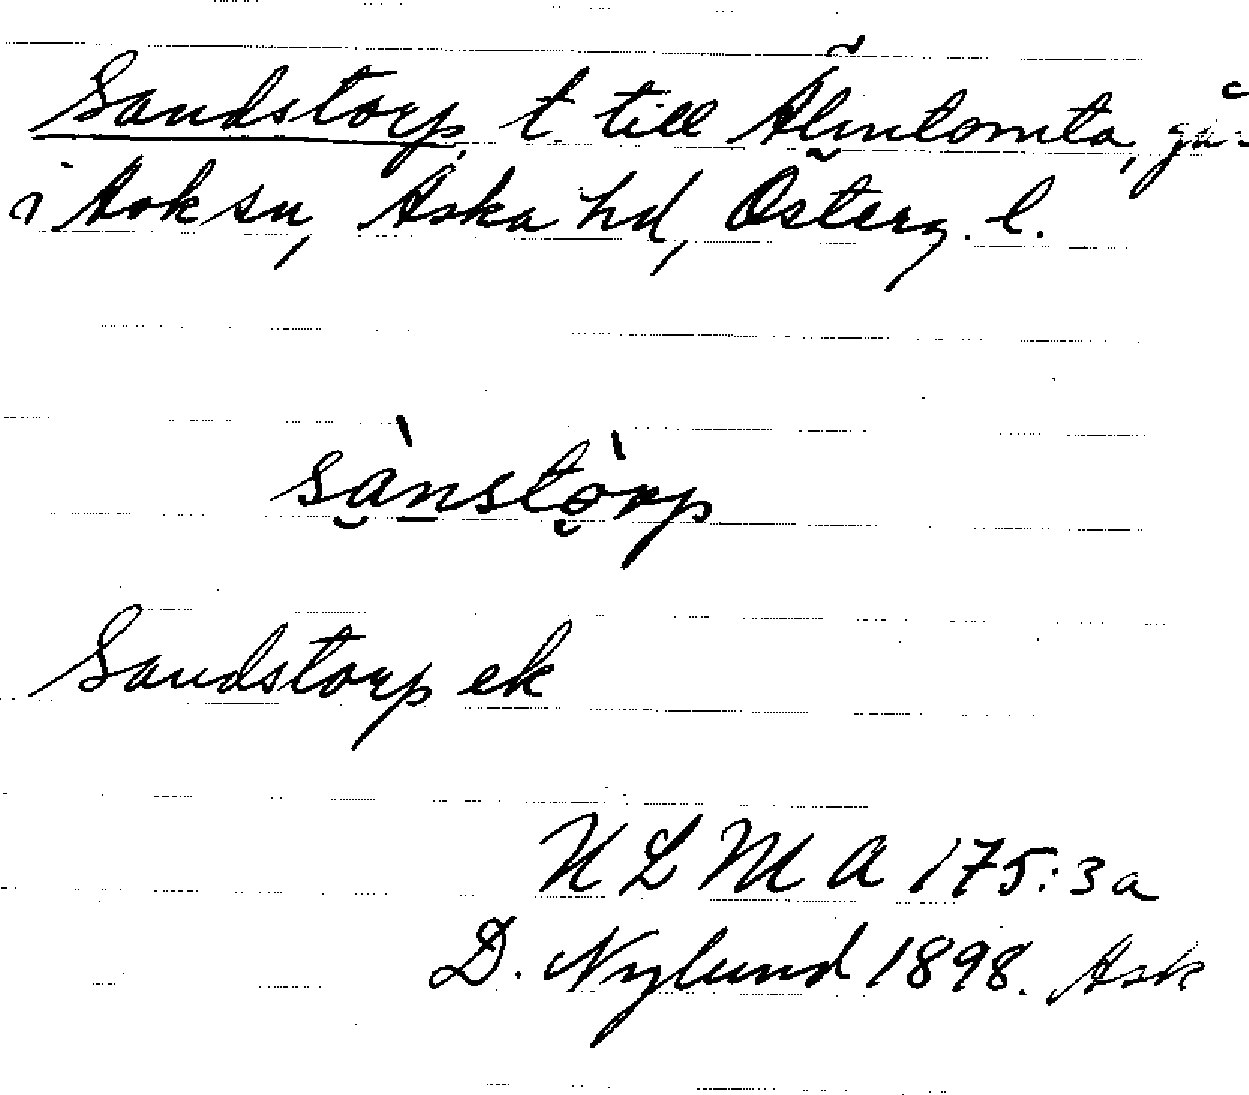 Sandstorp, t. till Älmtomta, gå-
i Ask sn, Aska hd, Österg. l.
sànstòrp
Sandstorp ek
ULMA 175:3a
D. Nylund 1898. Ask